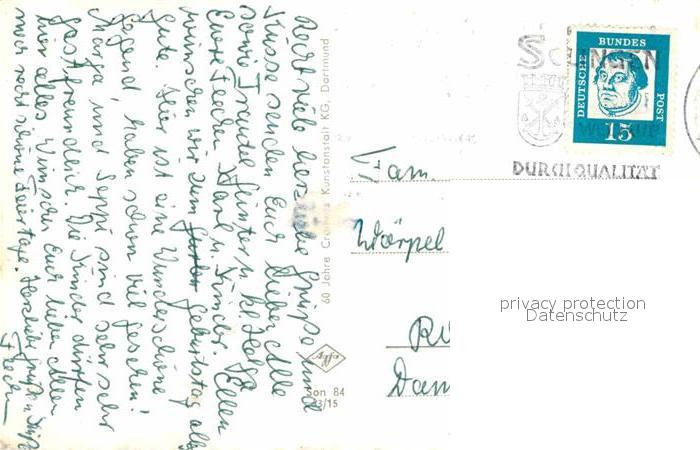 Recht viele herzliche Grüße und
Küsse senden Euch Lieben Alle
sowie Traudel Günter u. kl. Helga
Eure Feechen Karl u. Kinder. Ellen
wünschen wir zum Geburtstag alles
Gute. Hier ist eine wunderschöne
Gegend haben schon viel gesehen!
Marga und Seppi sind sehr sehr
Gastfreundlich. Die Kinder dürfen
hier alles. Wünschen Euch lieben Allen
noch recht schöne Feiertage. Herzliche Grüße u. Küsse
Feechen
60 Jahre Cramers Kunstanstalt KG, Dortmund
Son 84
3/15
DEUTSCHE BUNDES POST
15
DURCH QUALITÄT
Fam.
Wörpel
Dam
privacy protection
Datenschutz